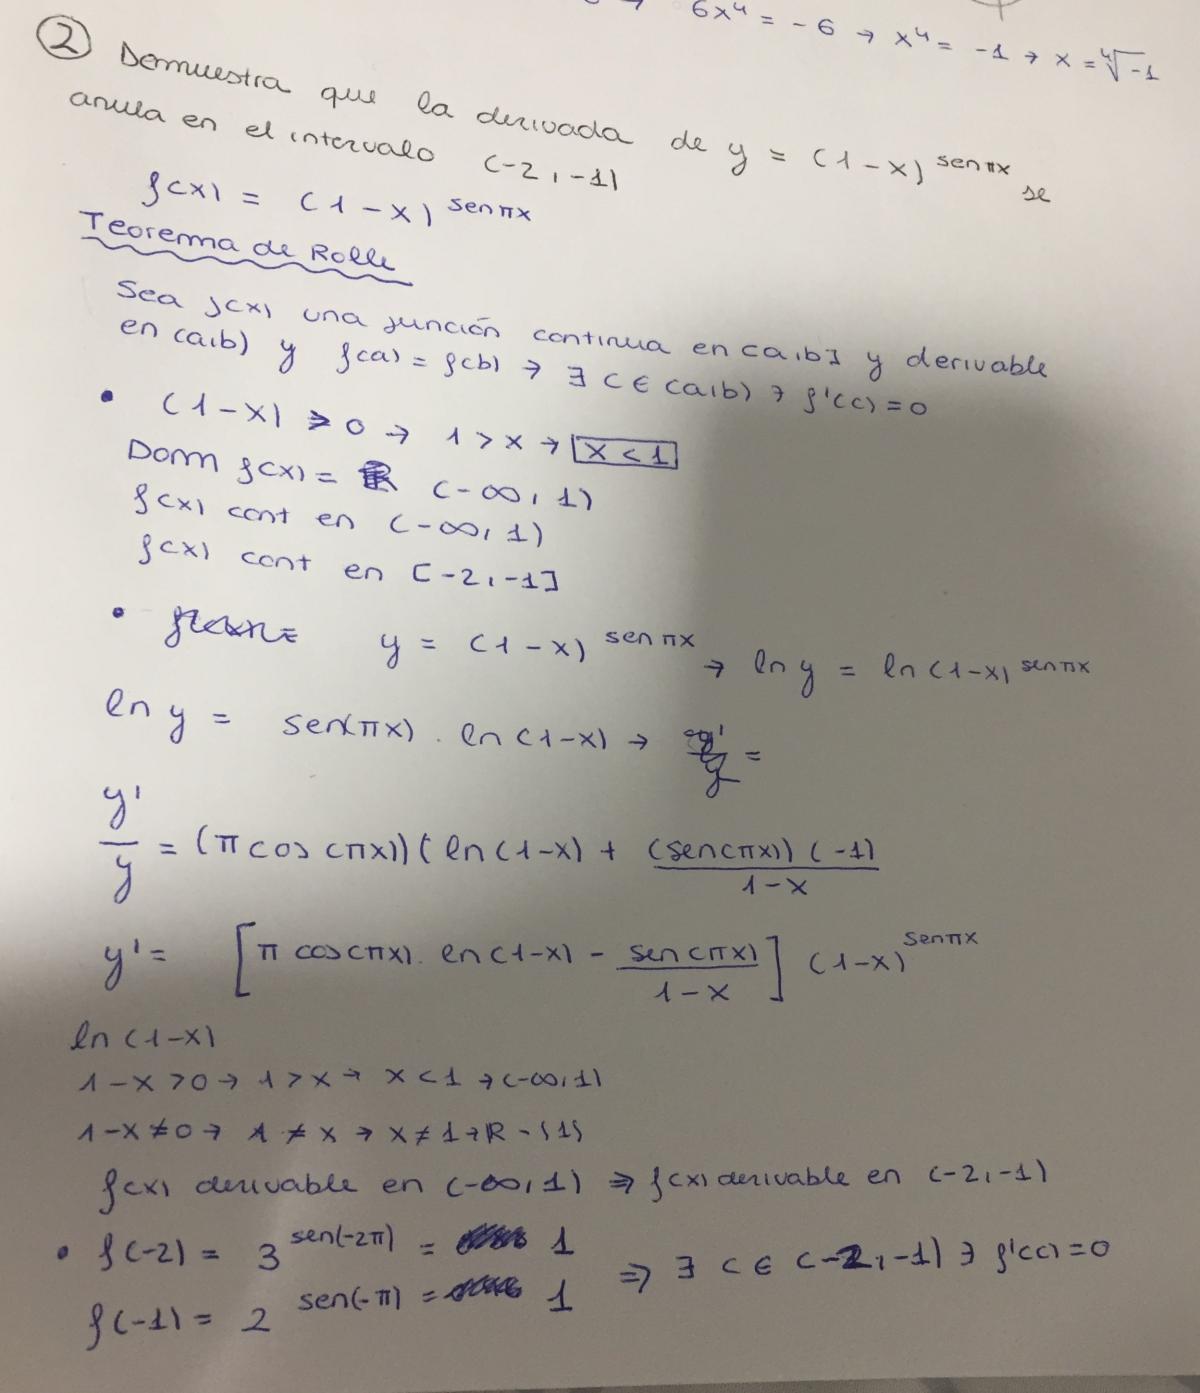 6x⁴ = -6 → x⁴ = -1 → x = ⁴√-1
② Demuestra que la derivada de y = (1-x)^senπx se
anula en el intervalo (-2, -1)
f(x) = (1-x)^senπx
Teorema de Rolle
Sea f(x) una función continua en [a,b] y derivable
en (a,b) y f(a) = f(b) → ∃ c ∈ (a,b) ∋ f'(c) = 0
• (1-x) > 0 → 1 > x → x < 1
Dom f(x) = (-∞, 1)
f(x) cont en (-∞, 1)
f(x) cont en [-2, -1]
• y = (1-x)^senπx → ln y = ln(1-x)^senπx
ln y = sen(πx) · ln(1-x) →
y'/y = (π cos(πx))(ln(1-x) + (sen(πx))(-1)/1-x
y' = [π cos(πx) · ln(1-x) - sen(πx)/1-x] (1-x)^senπx
ln(1-x)
1-x > 0 → 1 > x → x < 1 → (-∞, 1)
1-x ≠ 0 → 1 ≠ x → x ≠ 1 → R - {1}
f(x) derivable en (-∞, 1) ⇒ f(x) derivable en (-2, -1)
• f(-2) = 3^sen(-2π) = 1
f(-1) = 2^sen(-π) = 1 ⇒ ∃ c ∈ (-2, -1) ∋ f'(c) = 0